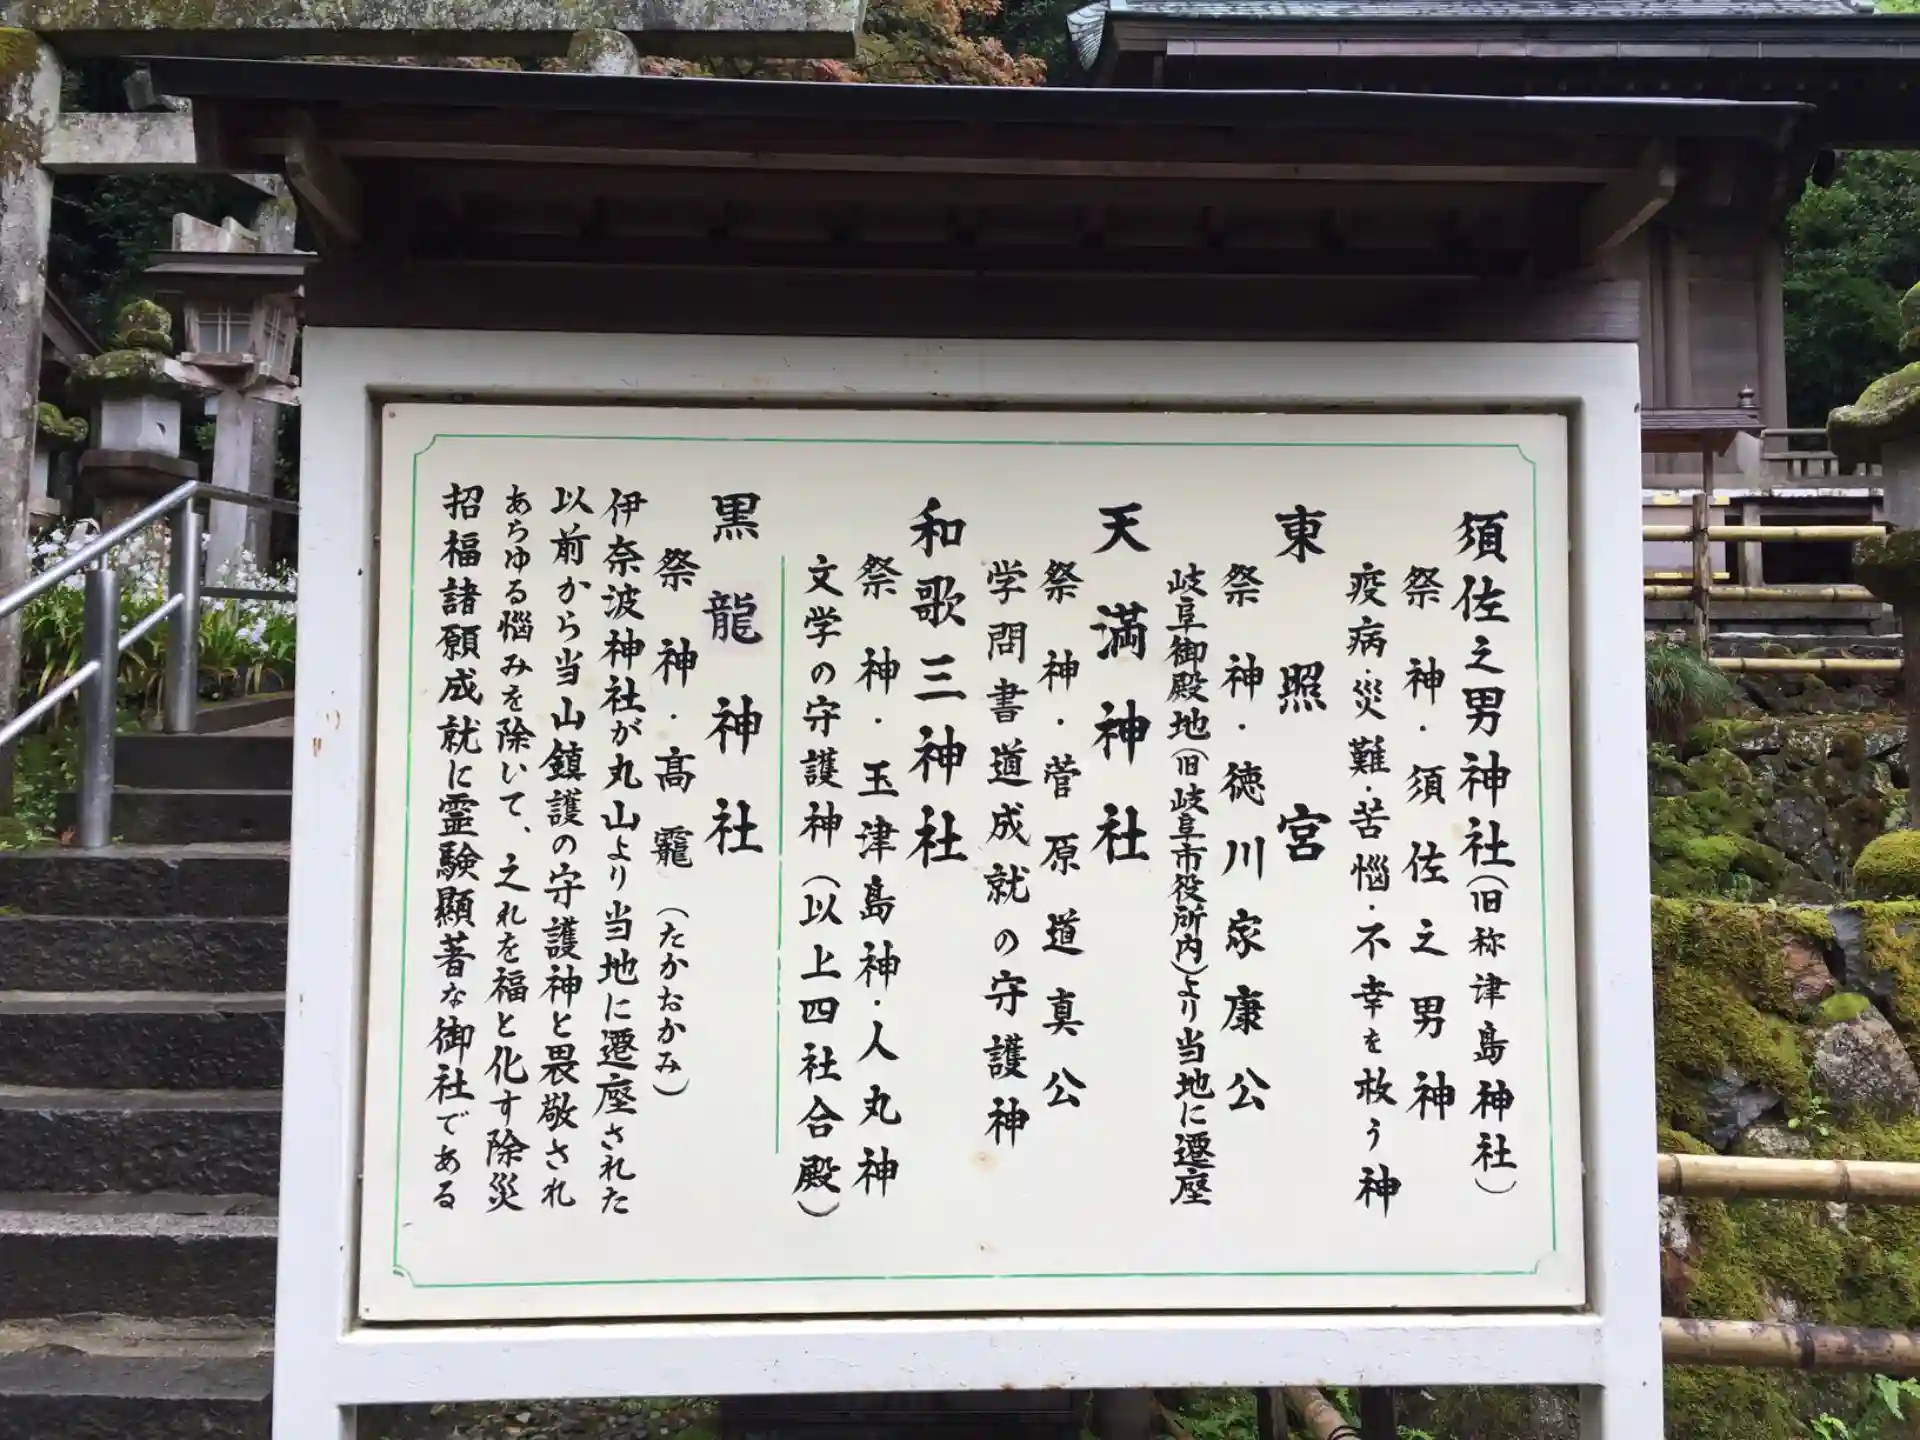 須佐之男神社(旧称津島神社)
祭神・須佐之男神
疫病・災難・苦悩・不幸を救う神
東照宮
祭神・徳川家康公
岐阜御殿地(旧岐阜市役所内)より当地に遷座
天満神社
祭神・菅原道真公
学問書道成就の守護神
和歌三神社
祭神・玉津島神・人丸神
文学の守護神(以上四社合殿)
黒龍神社
祭神・高龗(たかおかみ)
伊奈波神社が丸山より当地に遷座された
以前から当山鎮護の守護神と畏敬され
あらゆる悩みを除いて、之れを福と化す除災
招福諸願成就に霊験顯著な御社である